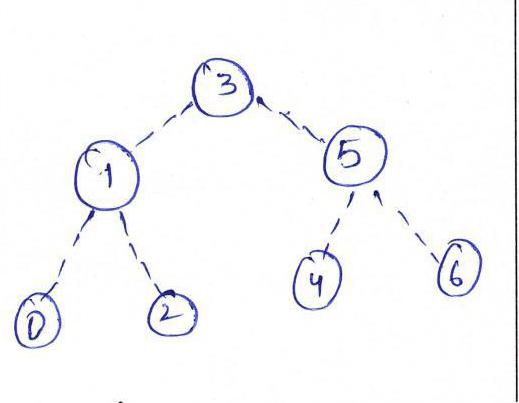 3
1 5
0 2 4 6